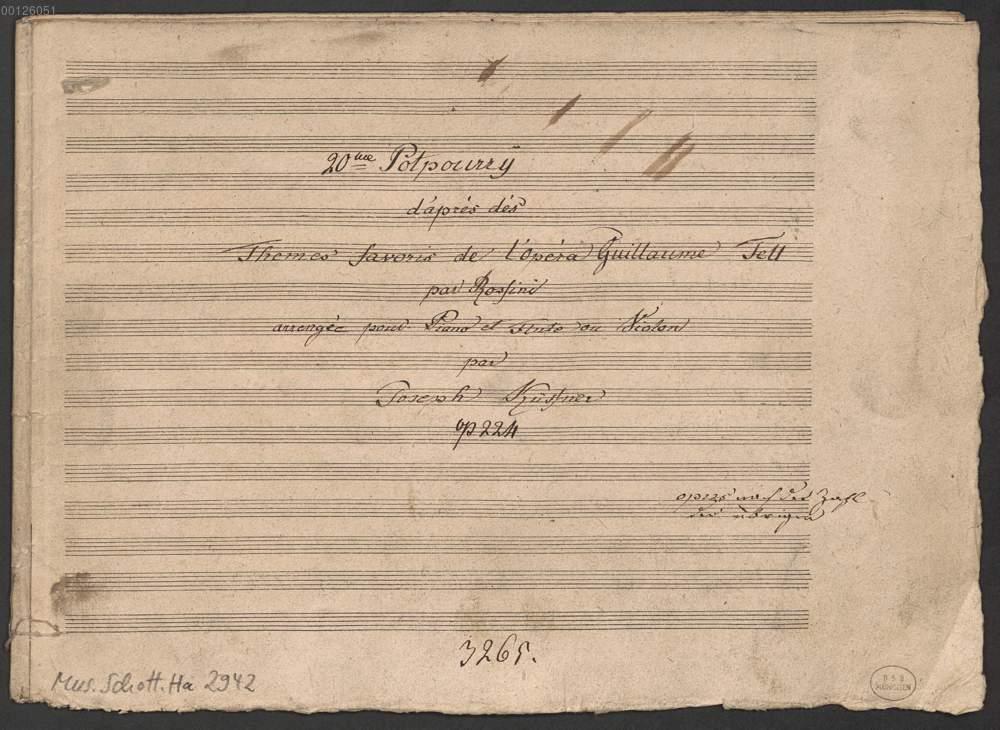 00126051
20me Potpourry
d'aprés dés
Themes favoris de l'Opéra Guillaume Tell
par Rossini
arrengée pour Piano et Flute ou Violon
par
Joseph Küffner
op 224
nach der Zahl
der übrigen
3265.
Mus. Schott. Ha 2942
BSB
MÜNCHEN